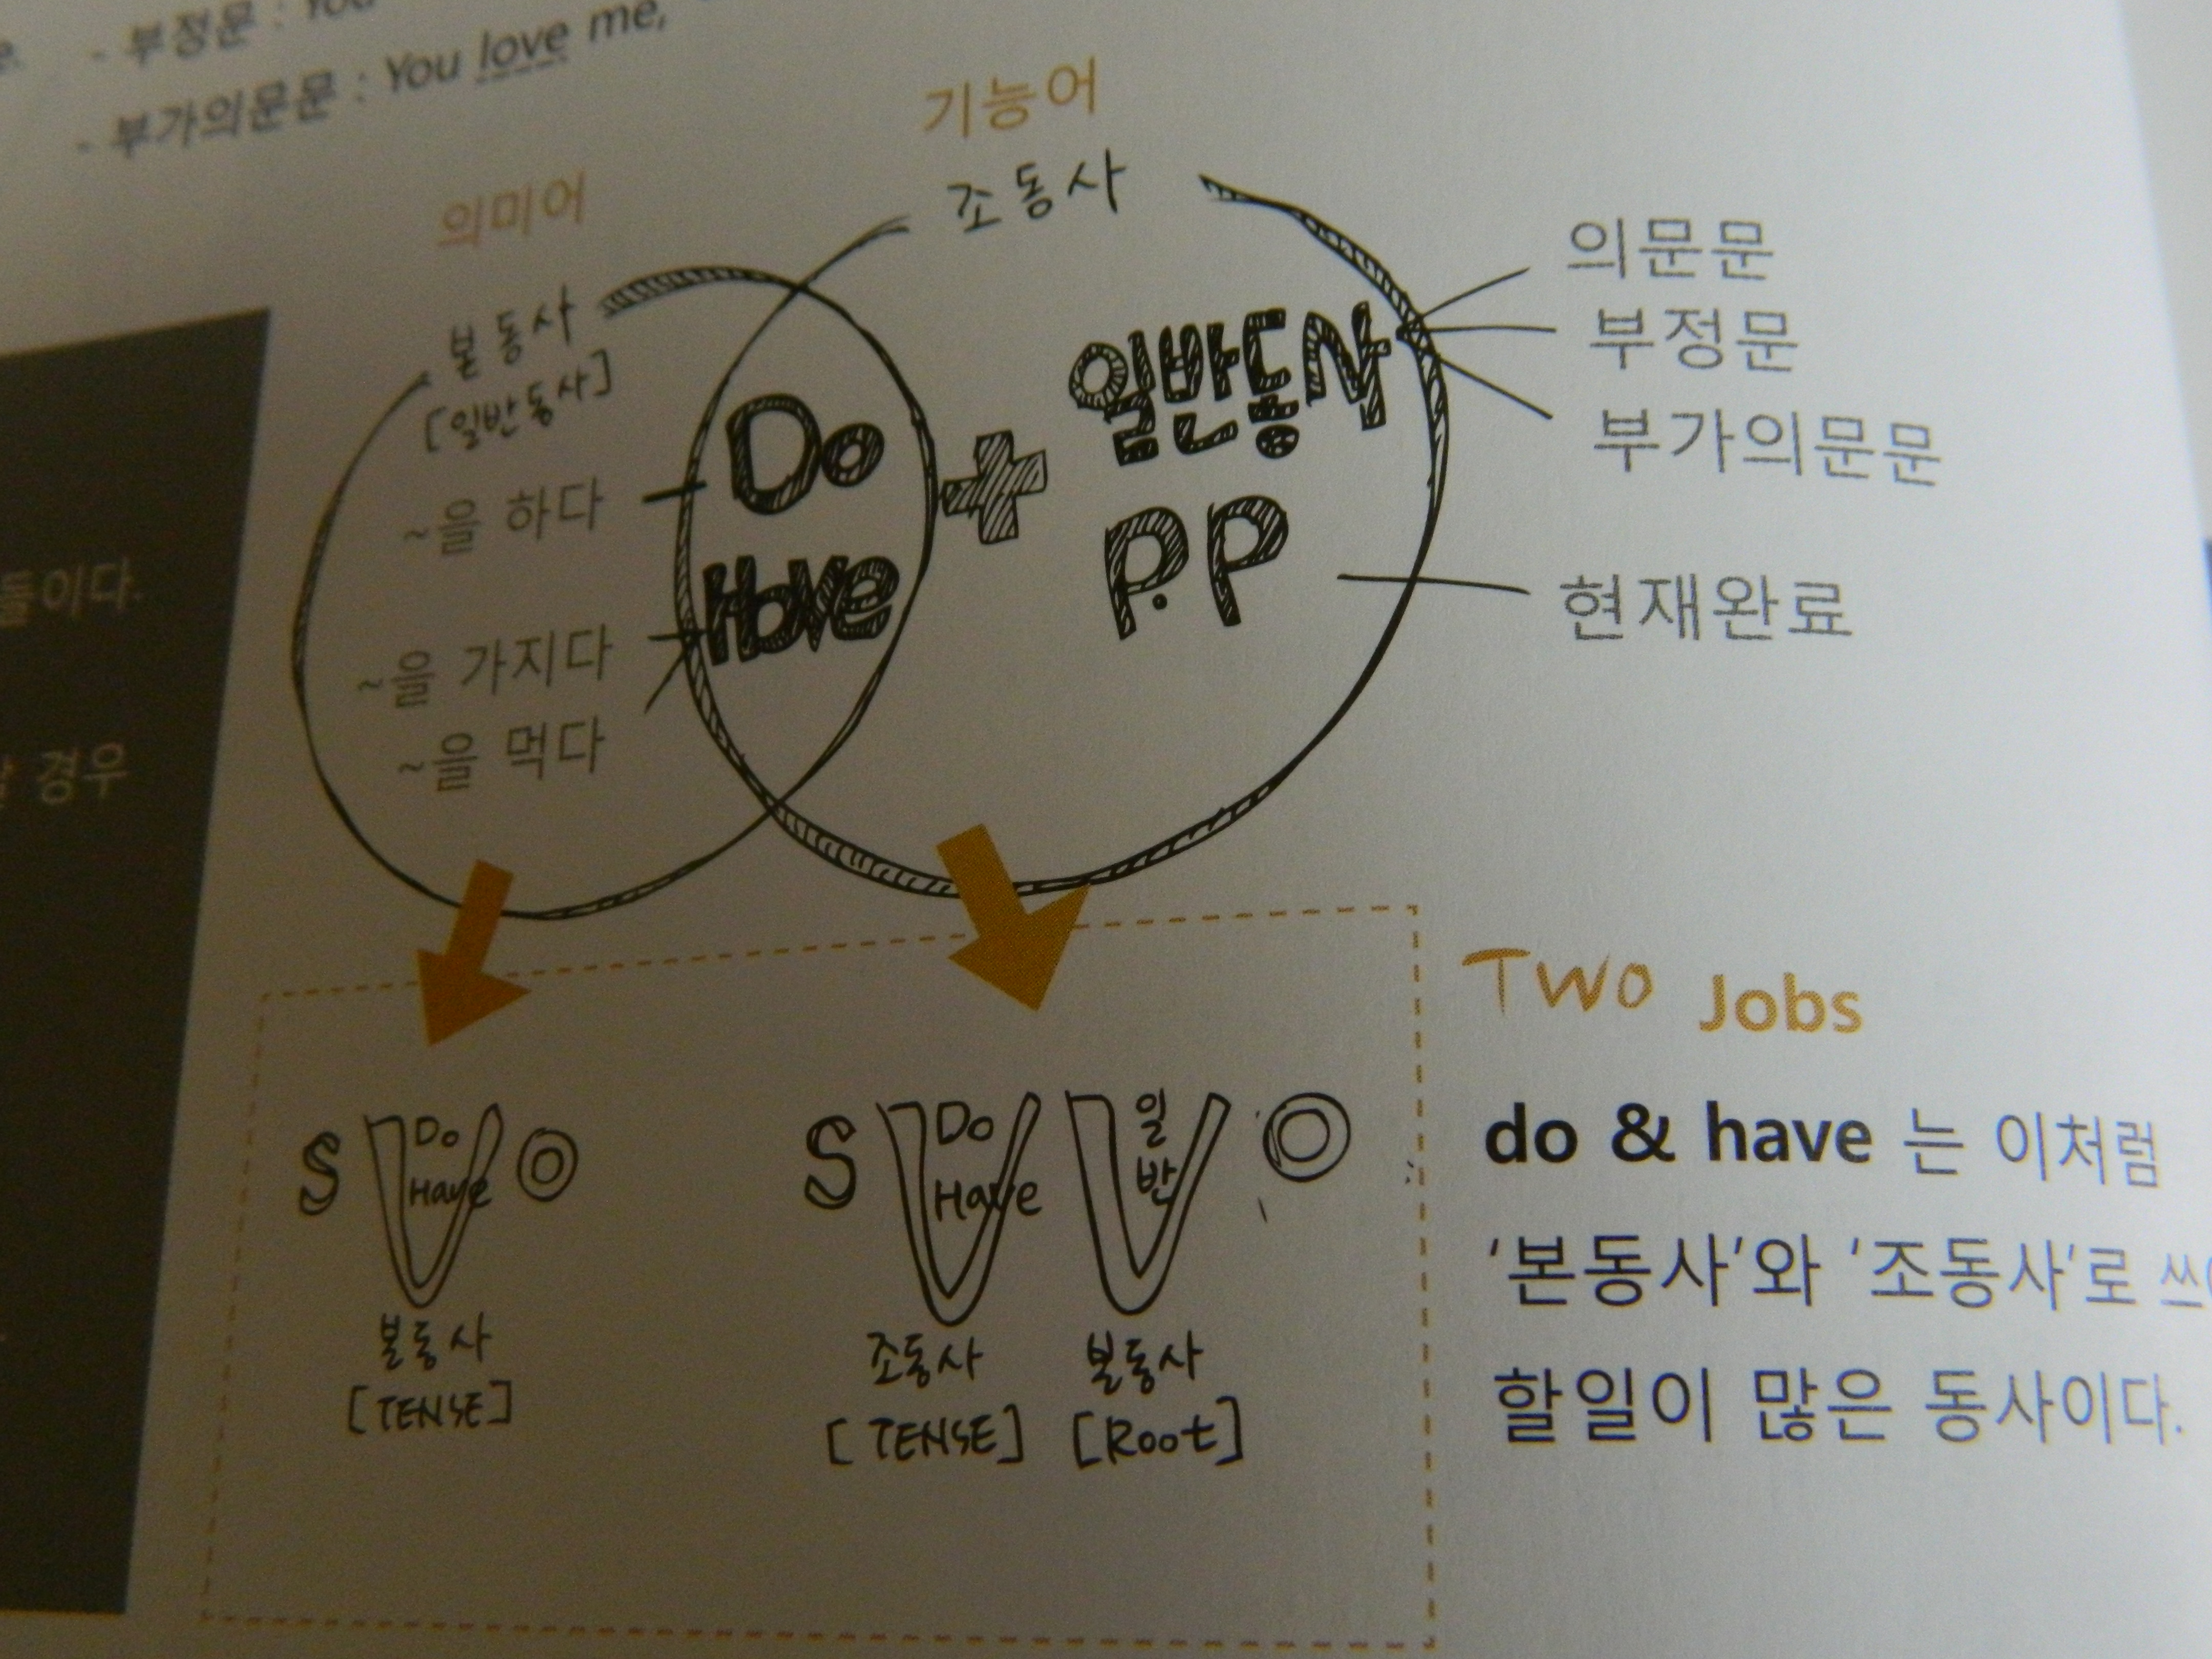 - 부정문 : You
- 부가의문문 : You love me,
기능어
조동사
의미어
본동사
[일반동사]
~을 하다
~을 가지다
~을 먹다
Do
Have
+
일반동사
P.P
의문문
부정문
부가의문문
현재완료
들이다.
경우
S Do Have O
본동사
[TENSE]
S Do Have 일반 O
조동사 본동사
[TENSE] [Root]
TWO Jobs
do & have 는 이처럼
‘본동사’와 ‘조동사’로
할일이 많은 동사이다.